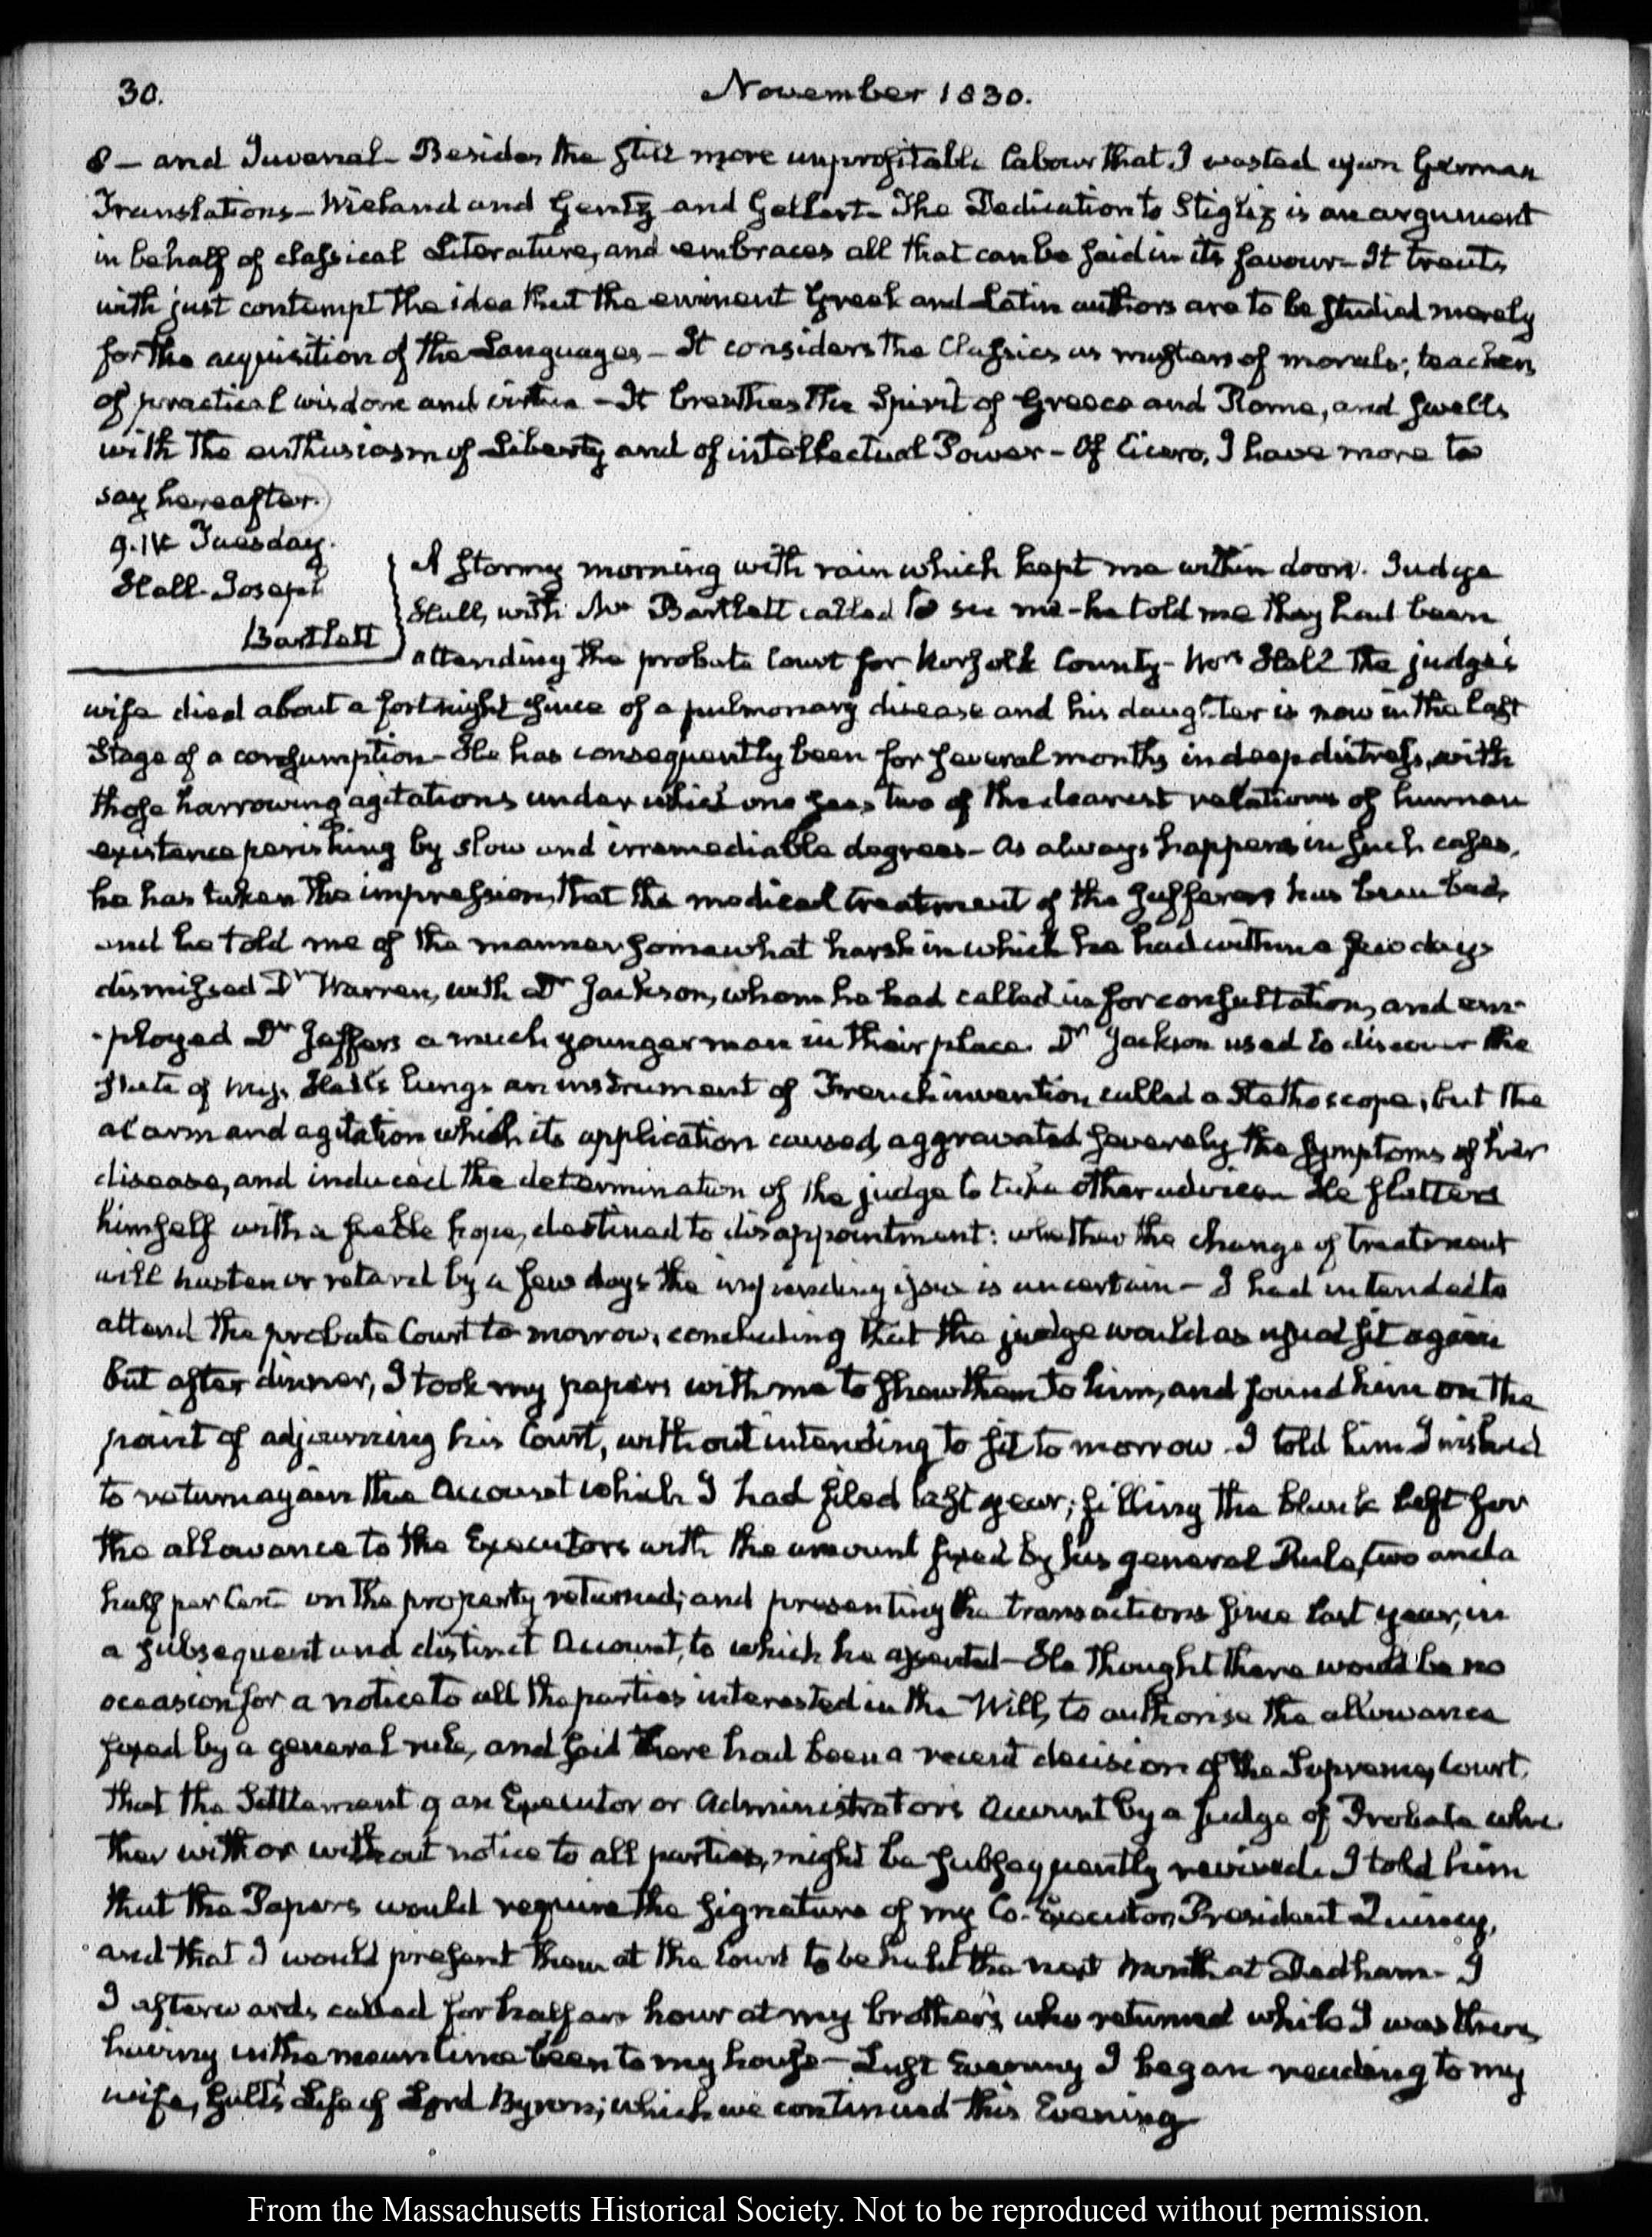 30.
November 1830.
8 — and Juvenal — Besides the still more unprofitable labour that I wasted upon German
Translations — Wieland and Gentz and Gellert — The Dedication to Stiglitz is an argument
in behalf of classical Literature, and embraces all that can be said in its favour — It treats
with just contempt the idea that the eminent Greek and Latin authors are to be studied merely
for the acquisition of the Languages — It considers the Classics as masters of morals; teachers
of practical wisdom and virtue — It breathes the Spirit of Greece and Rome, and swells
with the enthusiasm of Liberty and of intellectual Power — Of Cicero, I have more to
say hereafter.
9. IV. Tuesday.
Hall. Joseph
Bartlett
A stormy morning with rain which kept me within doors. Judge
Hall, with Mr Bartlett called to see me — he told me they had been
attending the probate Court for Norfolk County — Mrs Hall the judge's
wife died about a fortnight since of a pulmonary disease and his daughter is now in the last
Stage of a consumption — He has consequently been for several months in deep distress, with
those harrowing agitations under which one sees two of the dearest relations of human
existence perishing by slow and irremediable degrees — As always happens in such cases,
he has taken the impression, that the medical treatment of the sufferers has been bad,
and he told me of the manner somewhat harsh in which he had within a few days
dismissed Dr Warren, with Dr Jackson, whom he had called in for consultation, and em-
-ployed Dr Jeffers a much younger man in their place. Dr Jackson used to discover the
state of Miss Hall's lungs an instrument of French invention called a Stethoscope, but the
alarm and agitation which its application caused, aggravated severely the symptoms of her
disease, and induced the determination of the judge to take other advice. He flatters
himself with a feeble hope, destined to disappointment: whether the change of treatment
will hasten or retard by a few days the impending issue is uncertain — I had intended to
attend the probate Court to-morrow, concluding that the judge would as usual sit again
but after dinner, I took my papers with me to shew them to him, and found him on the
point of adjourning his Court, without intending to sit to morrow. I told him I wished
to return again the Account which I had filed last year; filling the blank left for
the allowance to the Executors with the amount fixed by his general Rule, two and a
half per Cent on the property returned; and presenting the transactions since last year, in
a subsequent and distinct Account, to which he assented — He thought there would be no
occasion for a notice to all the parties interested in the Will, to authorise the allowance
fixed by a general rule, and said there had been a recent decision of the Supreme Court,
that the Settlement of an Executor or Administrator's Account by a Judge of Probate whe-
ther with or without notice to all parties, might be subsequently revived. I told him
that the Papers would require the signature of my Co-Executor President Quincy,
and that I would present them at the Court to be held the next Month at Dedham — I
I afterwards called for half an hour at my brother's, who returned while I was there,
having in the mean time been to my house — Last Evening I began reading to my
wife, Galt's Life of Lord Byron; which we continued this Evening
From the Massachusetts Historical Society. Not to be reproduced without permission.